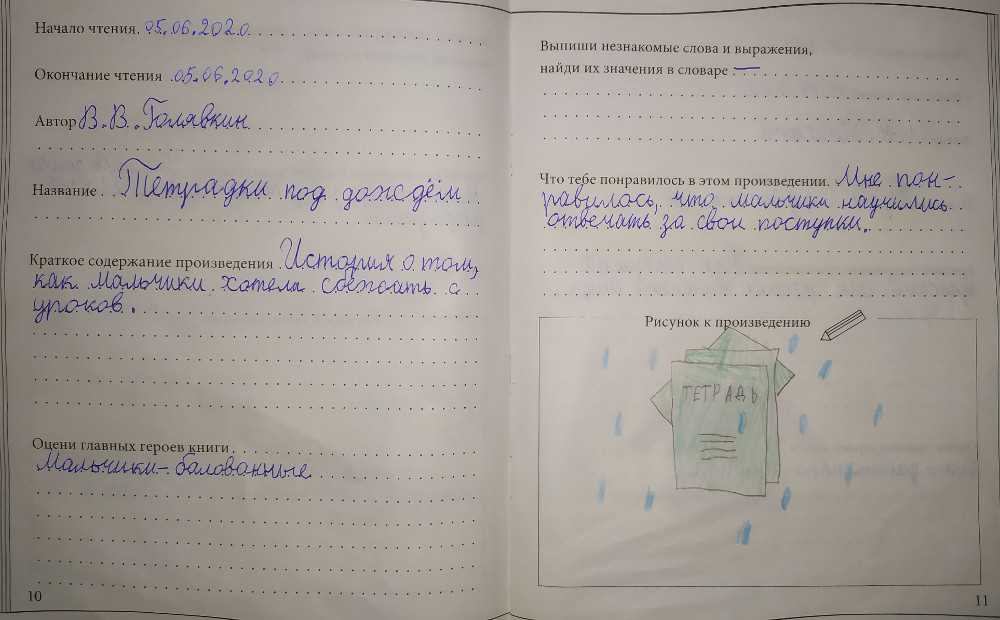 Начало чтения. 05.06.2020.
Окончание чтения 05.06.2020.
Автор В. В. Голявкин
Название Тетрадки под дождём
Краткое содержание произведения История о том,
как мальчики хотели сбежать с
уроков.
Оцени главных героев книги.
Мальчики - балованные
10
Выпиши незнакомые слова и выражения,
найди их значения в словаре —
Что тебе понравилось в этом произведении. Мне пон-
равилось, что мальчики научились
отвечать за свои поступки.
Рисунок к произведению
ТЕТРАДЬ
11